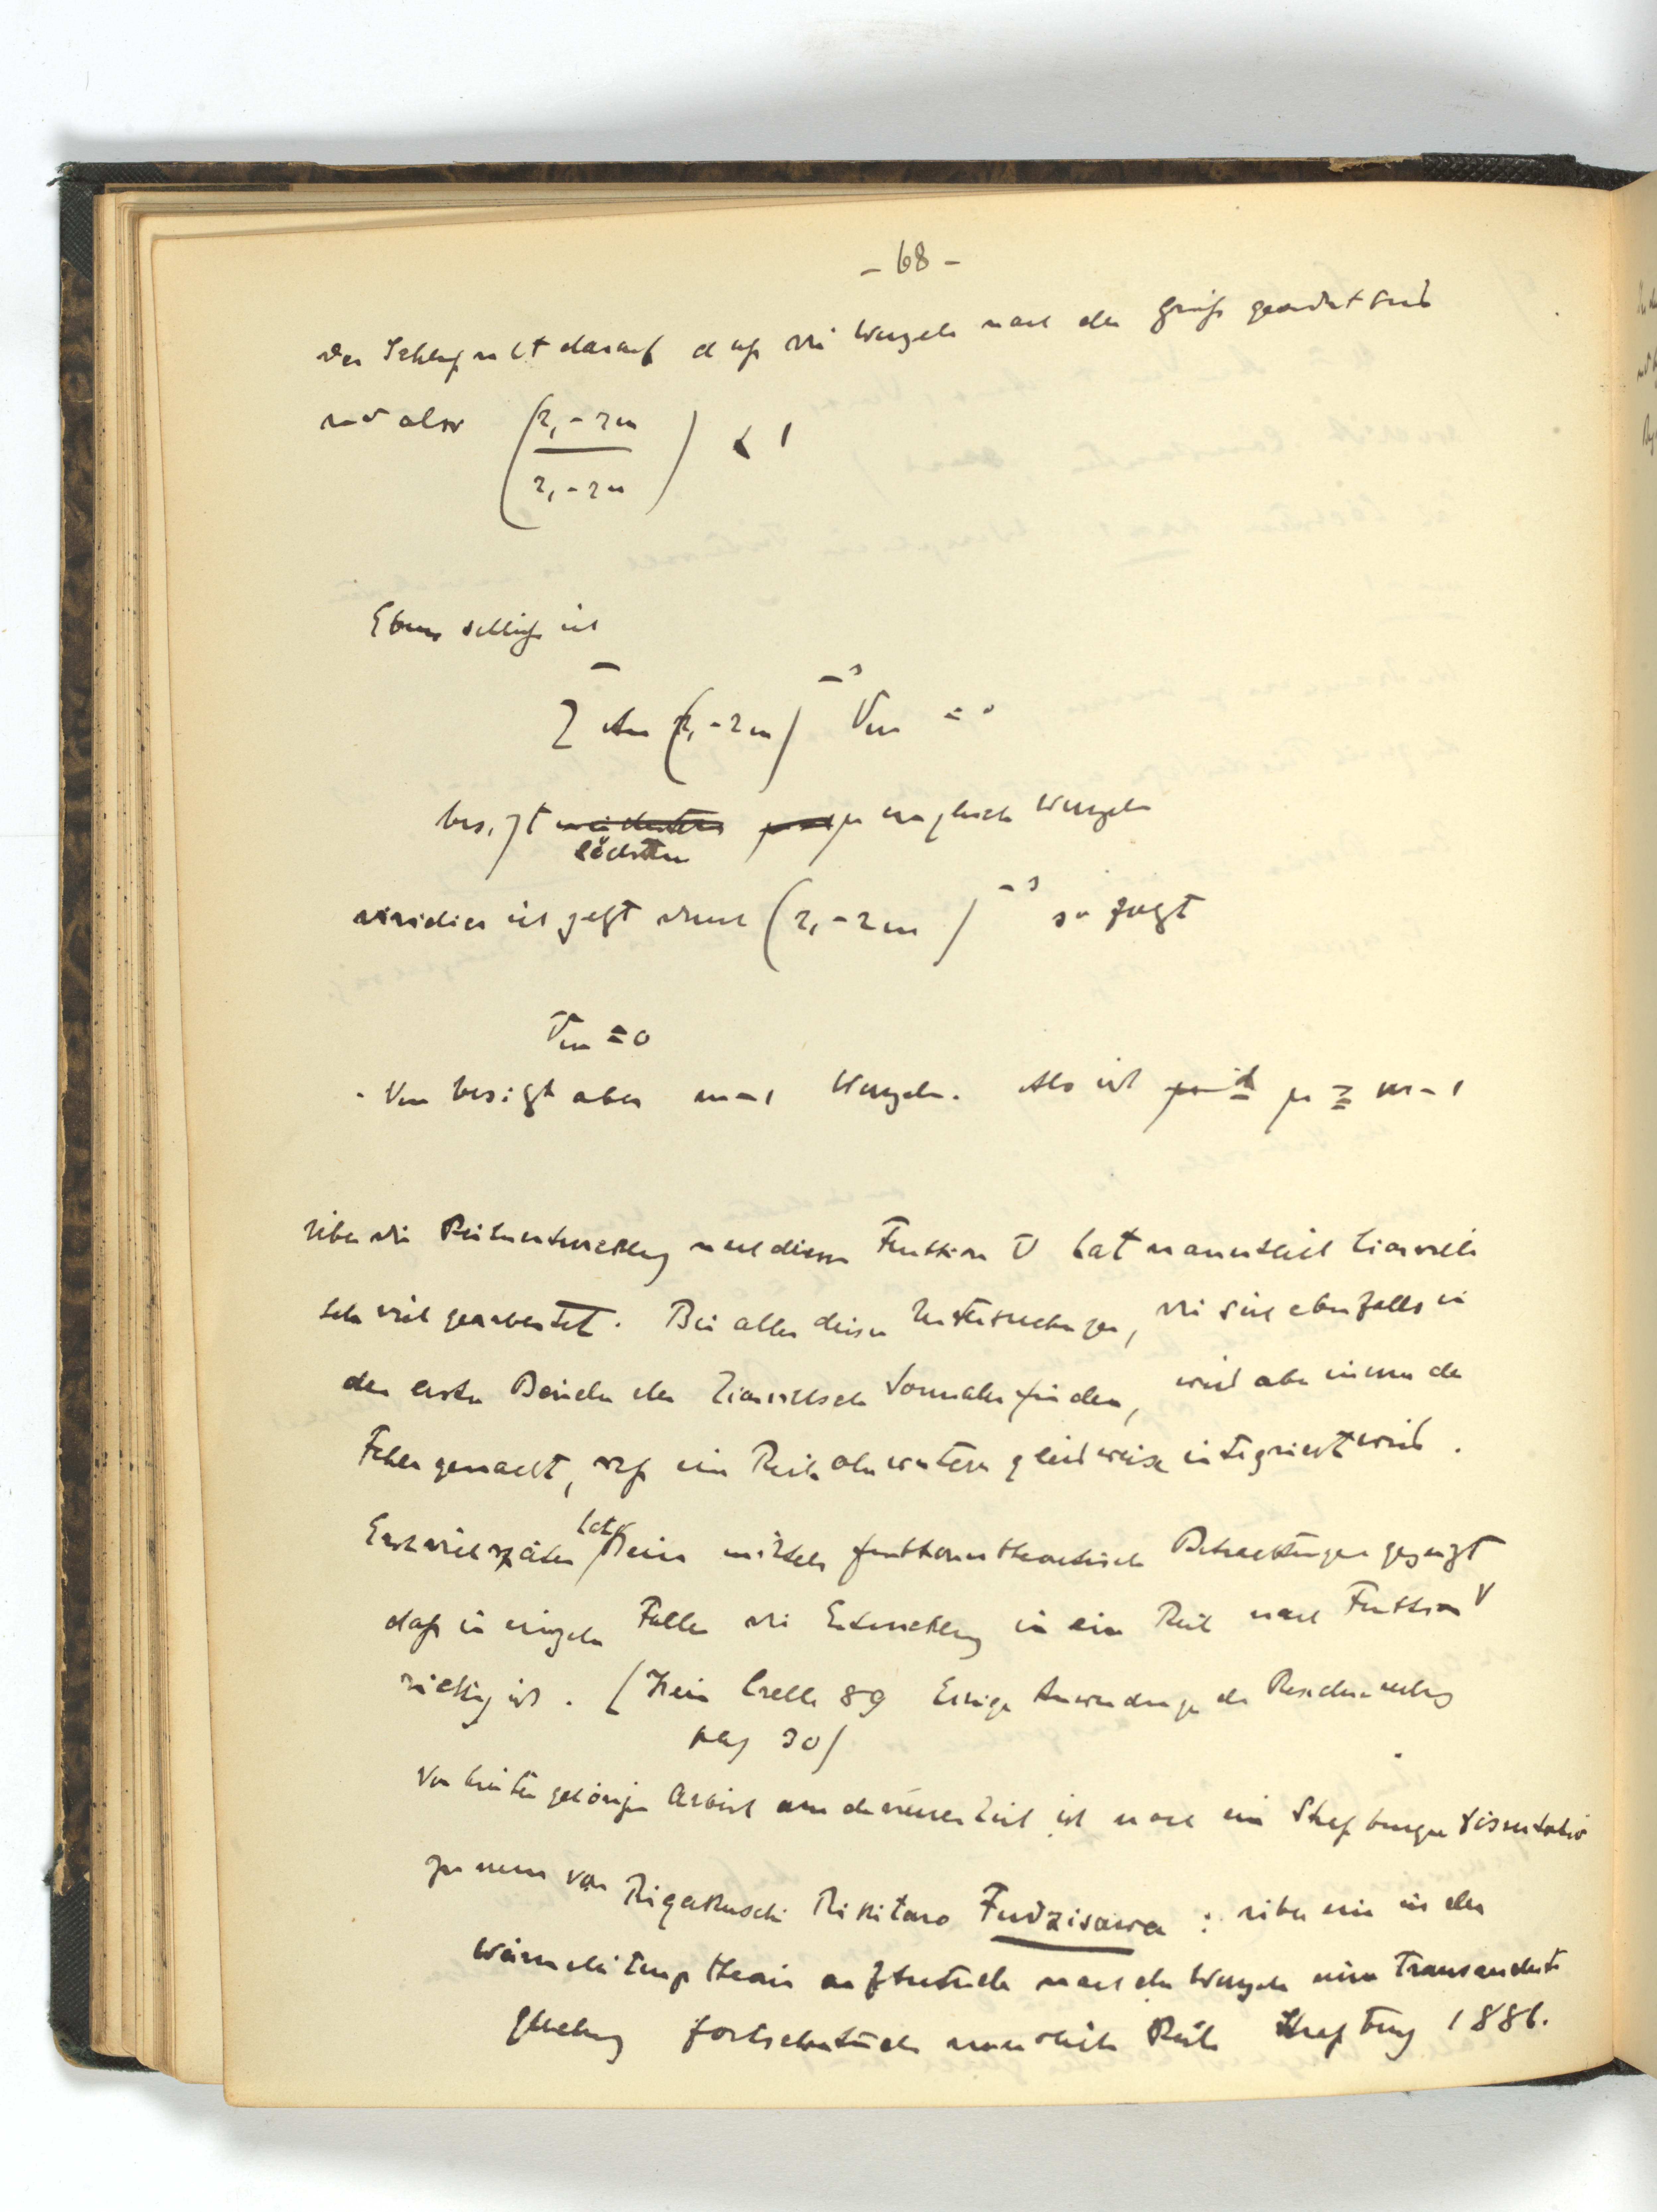 - 68 -
Der Schluss ruht darauf dass die Wurzeln nach der Grösse geordnet sind
und also (r₁ - rm / r₁ - rn) < 1
Ebenso schliesse ich
Σ Am (r₁ - rm)⁻ˢ Vm = 0
besitzt höchstens μ ungleiche Wurzeln
dividier ich jetzt durch (r₁ - rm)⁻ˢ so folgt
Vm = 0
Vm besitzt aber m-1 Wurzeln. Also ist μ ≧ m-1
über die Reihenentwicklung nach diesen Funktionen V hat namentlich Liouville
sehr viel gearbeitet. Bei allen diesen Untersuchungen, die sich ebenfalls in
den ersten Bänden des Liouvilleschen Journales finden, wird aber immer der
Fehler gemacht, dass eine Reihe ohne weiteres gliedweise integriert wird.
Erst viel später hat Heine mittels funktionentheoretischer Betrachtungen gezeigt
dass in einzelnen Fällen die Entwicklung in eine Reihe nach Funktionen V
richtig ist. (Heine Crelle 89 Einige Anwendungen der Residuenrechnung
pag 30)
Von hierher gehörigen Arbeiten aus der neueren Zeit ist noch eine Strassburger Dissertation
zu nennen von Rigakuschi Rikitaro Fudzisawa : über eine in der
Wärmeleitungstheorie auftretende nach den Wurzeln einer transcendenten
Gleichung fortschreitende unendliche Reihe Strassburg 1886.